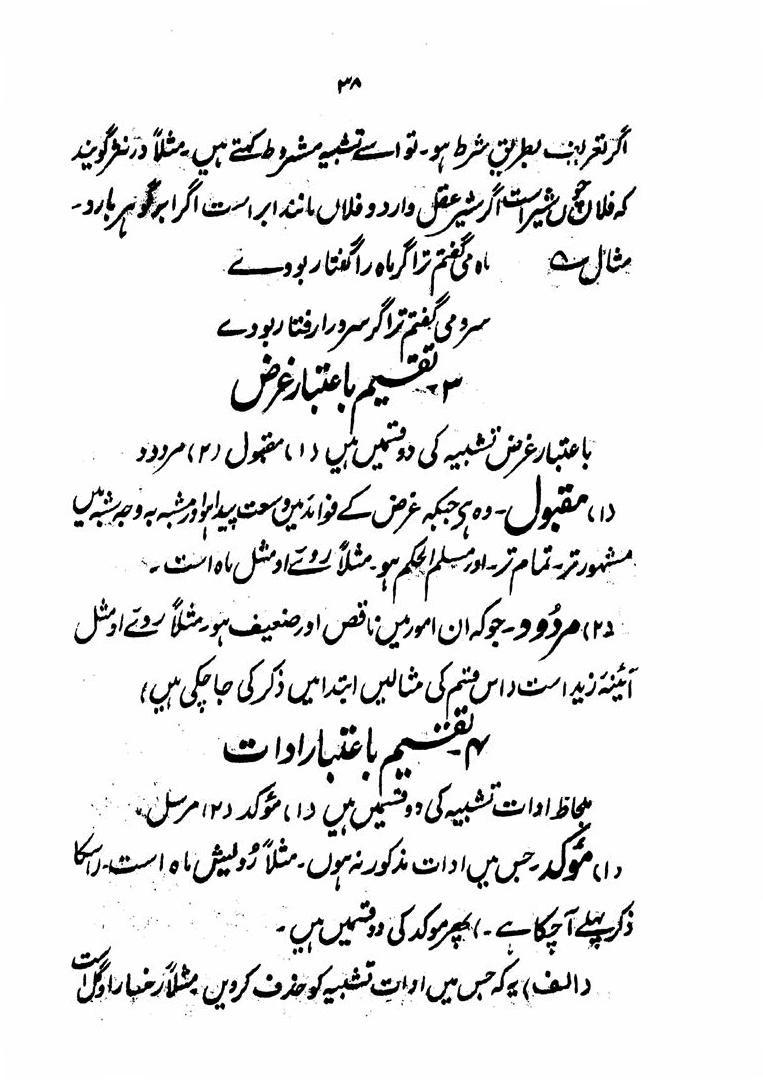 ۳۸
اگر تعریف بطریق شرط ہو۔ تو اسے تشبیہ مشروط کہتے ہیں۔ مثلاً در نثر گویند
کہ فلاں چوں شیر است اگر شیر عقل دارد و فلاں مانند ابر است اگر ابر گوہر بارد۔
مثال ؎ ماہ می گفتم ترا گر ماہ را گفتار بودے
سرو می گفتم ترا گر سرو را رفتار بودے
۳۔ تقسیم باعتبار غرض
باعتبار غرض تشبیہ کی دو قسمیں ہیں (۱) مقبول (۲) مردود
(۱) مقبول۔ وہ ہے جبکہ غرض کے فوائد میں وسعت پیدا ہو اور مشبہ بہ وجہ شبہ میں
مشہور تر۔ تمام تر۔ اور مسلم الحکم ہو۔ مثلاً روئے او مثل ماہ است۔
(۲) مردود۔ جو کہ ان امور میں ناقص اور ضعیف ہو۔ مثلاً روئے او مثل
آئینۂ زید است (اس قسم کی مثالیں ابتدا میں ذکر کی جا چکی ہیں)
۴۔ تقسیم باعتبار ادات
بلحاظ ادات تشبیہ کی دو قسمیں ہیں (۱) مؤکد (۲) مرسل۔
(۱) مؤکد۔ جس میں ادات مذکور نہ ہوں۔ مثلاً رویش ماہ است۔ (اسکا
ذکر پہلے آ چکا ہے۔) پھر موکد کی دو قسمیں ہیں۔
(الف) یہ کہ جس میں ادات تشبیہ کو حذف کر دیں مثلاً رخسار او گل است